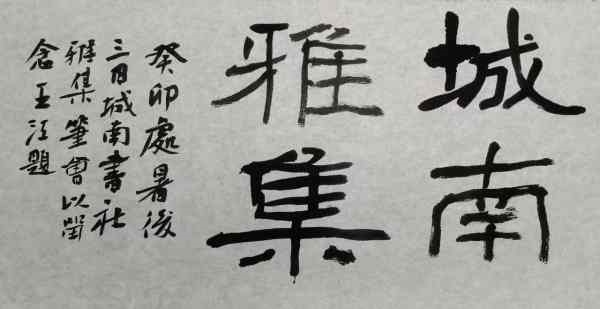 城南
雅集
癸卯處暑後
三日城南書社
雅集筆會以留
念王江題